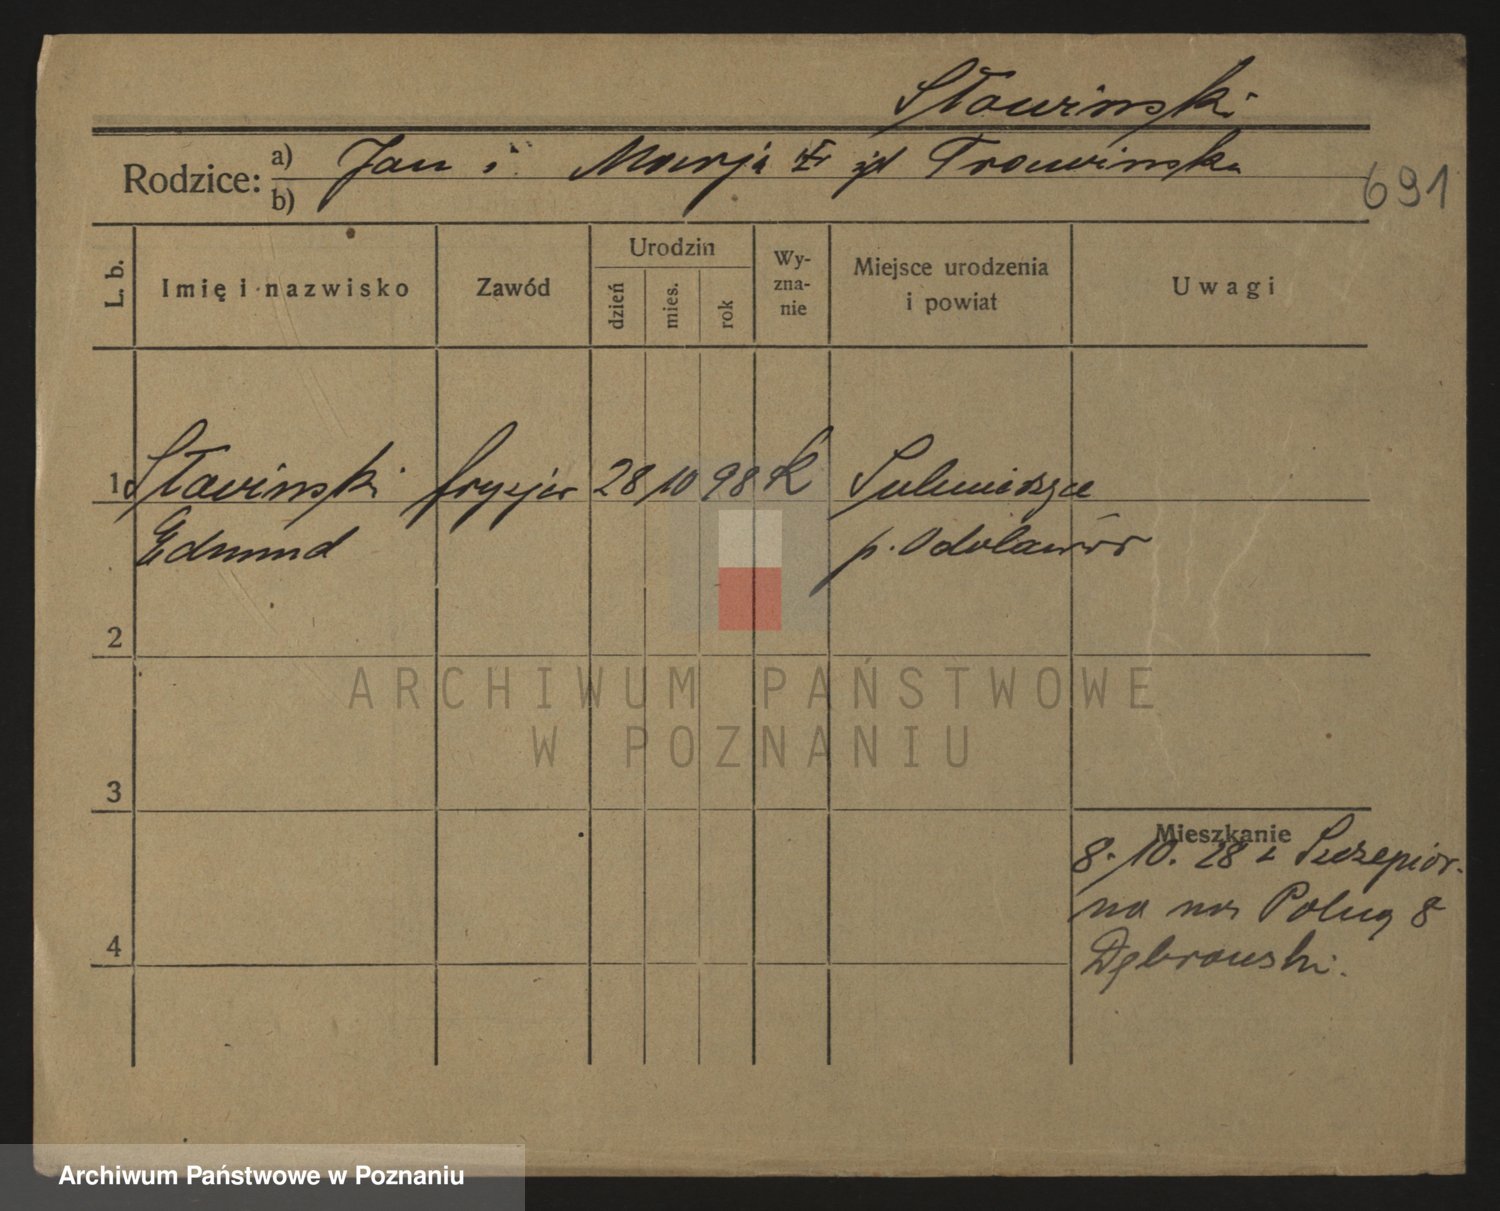 Sławiński
Rodzice: a) Jan i Marja zd Trawińska
b)
691
L. b.
Imię i nazwisko
Zawód
Urodzin
dzień
mies.
rok
Wy-
zna-
nie
Miejsce urodzenia
i powiat
Uwagi
1 Sławiński fryzjer 28 10 98 K Sulmierzyce
Edmund p. Odolanów
2
3
4
Mieszkanie
8. 10. 28 z Szczepior-
na na Polną 8
Dębrowski.
ARCHIWUM PAŃSTWOWE
W POZNANIU
Archiwum Państwowe w Poznaniu